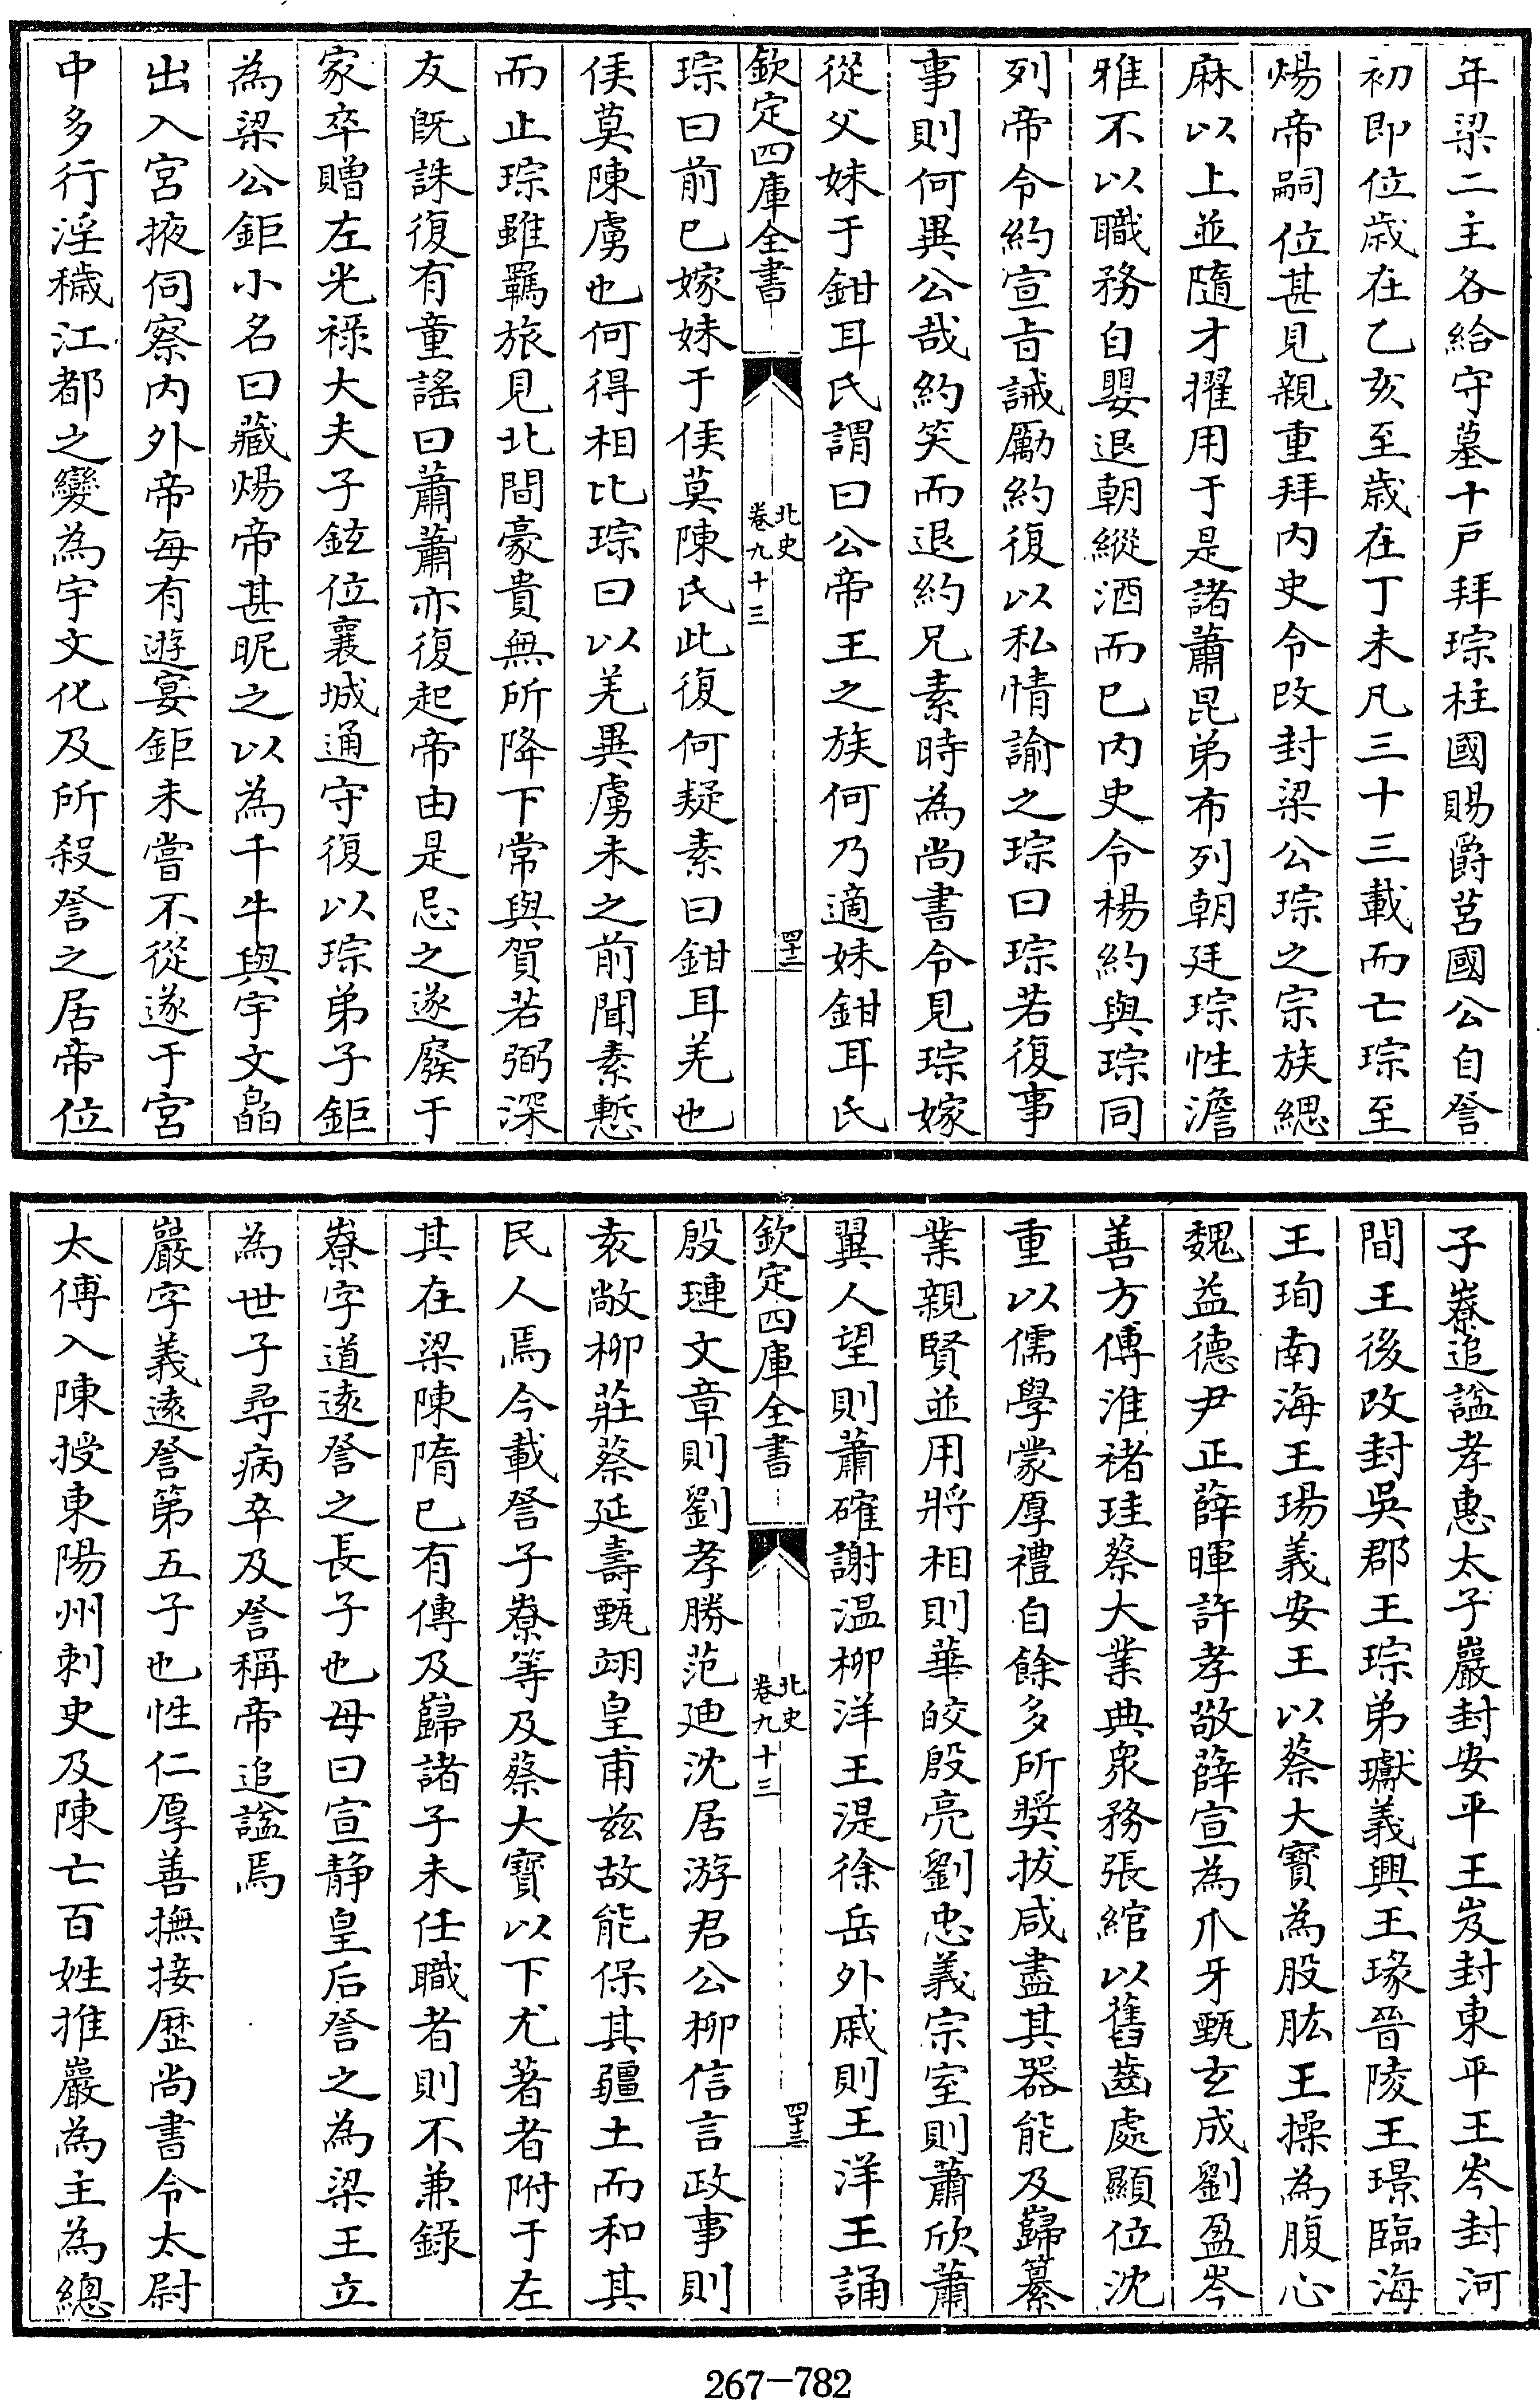 年梁二主各給守墓十戶拜琮柱國賜爵莒國公自詧
初即位歲在乙亥至歲在丁未凡三十三載而亡琮至
煬帝嗣位甚見親重拜內史令改封梁公琮之宗族緦
麻以上並隨才擢用于是諸蕭昆弟布列朝廷琮性澹
雅不以職務自嬰退朝縱酒而已內史令楊約與琮同
列帝令約宣旨誡勵約復以私情諭之琮曰琮若復事
事則何異公哉約笑而退約兄素時為尚書令見琮嫁
從父妹于鉗耳氏謂曰公帝王之族何乃適妹鉗耳氏
欽定四庫全書
北史
卷九十三
四十二
琮曰前已嫁妹于侯莫陳氏此復何疑素曰鉗耳羌也
侯莫陳虜也何得相比琮曰以羌異虜未之前聞素慙
而止琮雖羈旅見北間豪貴無所降下常與賀若弼深
友既誅復有童謠曰蕭蕭亦復起帝由是忌之遂廢于
家卒贈左光祿大夫子鉉位襄城通守復以琮弟子鉅
為梁公鉅小名曰藏煬帝甚昵之以為千牛與宇文皛
出入宮掖伺察內外帝每有遊宴鉅未嘗不從遂于宮
中多行淫穢江都之變為宇文化及所殺詧之居帝位
子嶚追諡孝惠太子巖封安平王岌封東平王岑封河
間王後改封吳郡王琮弟瓛義興王瑑晉陵王璟臨海
王珣南海王瑒義安王以蔡大寶為股肱王操為腹心
魏益德尹正薛暉許孝敬薛宣為爪牙甄玄成劉盈岑
善方傅淮褚珪蔡大業典衆務張綰以舊齒處顯位沈
重以儒學蒙厚禮自餘多所奬拔咸盡其器能及巋纂
業親賢並用將相則華皎殷亮劉忠義宗室則蕭欣蕭
翼人望則蕭確謝溫柳洋王湜徐岳外戚則王洋王誦
欽定四庫全書
北史
卷九十三
四十三
殷璉文章則劉孝勝范迪沈居游君公柳信言政事則
袁敞柳莊蔡延壽甄翊皇甫兹故能保其疆土而和其
民人焉今載詧子嶚等及蔡大寶以下尤著者附于左
其在梁陳隋已有傳及巋諸子未任職者則不兼錄
嶚字道遠詧之長子也母曰宣靜皇后詧之為梁王立
為世子尋病卒及詧稱帝追諡焉
巖字義遠詧第五子也性仁厚善撫接歷尚書令太尉
太傅入陳授東陽州刺史及陳亡百姓推巖為主為總
267—782